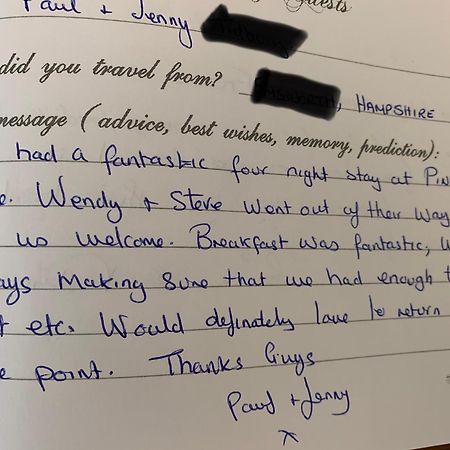 Guests
Paul + Jenny
did you travel from? , HAMPSHIRE
message (advice, best wishes, memory, prediction):
had a fantastic four night stay at Pin
e. Wendy + Steve went out of their way
us welcome. Breakfast was fantastic, w
ays making sure that we had enough t
t etc. Would definately love to return
e point. Thanks Guys
Paul + Jenny
x